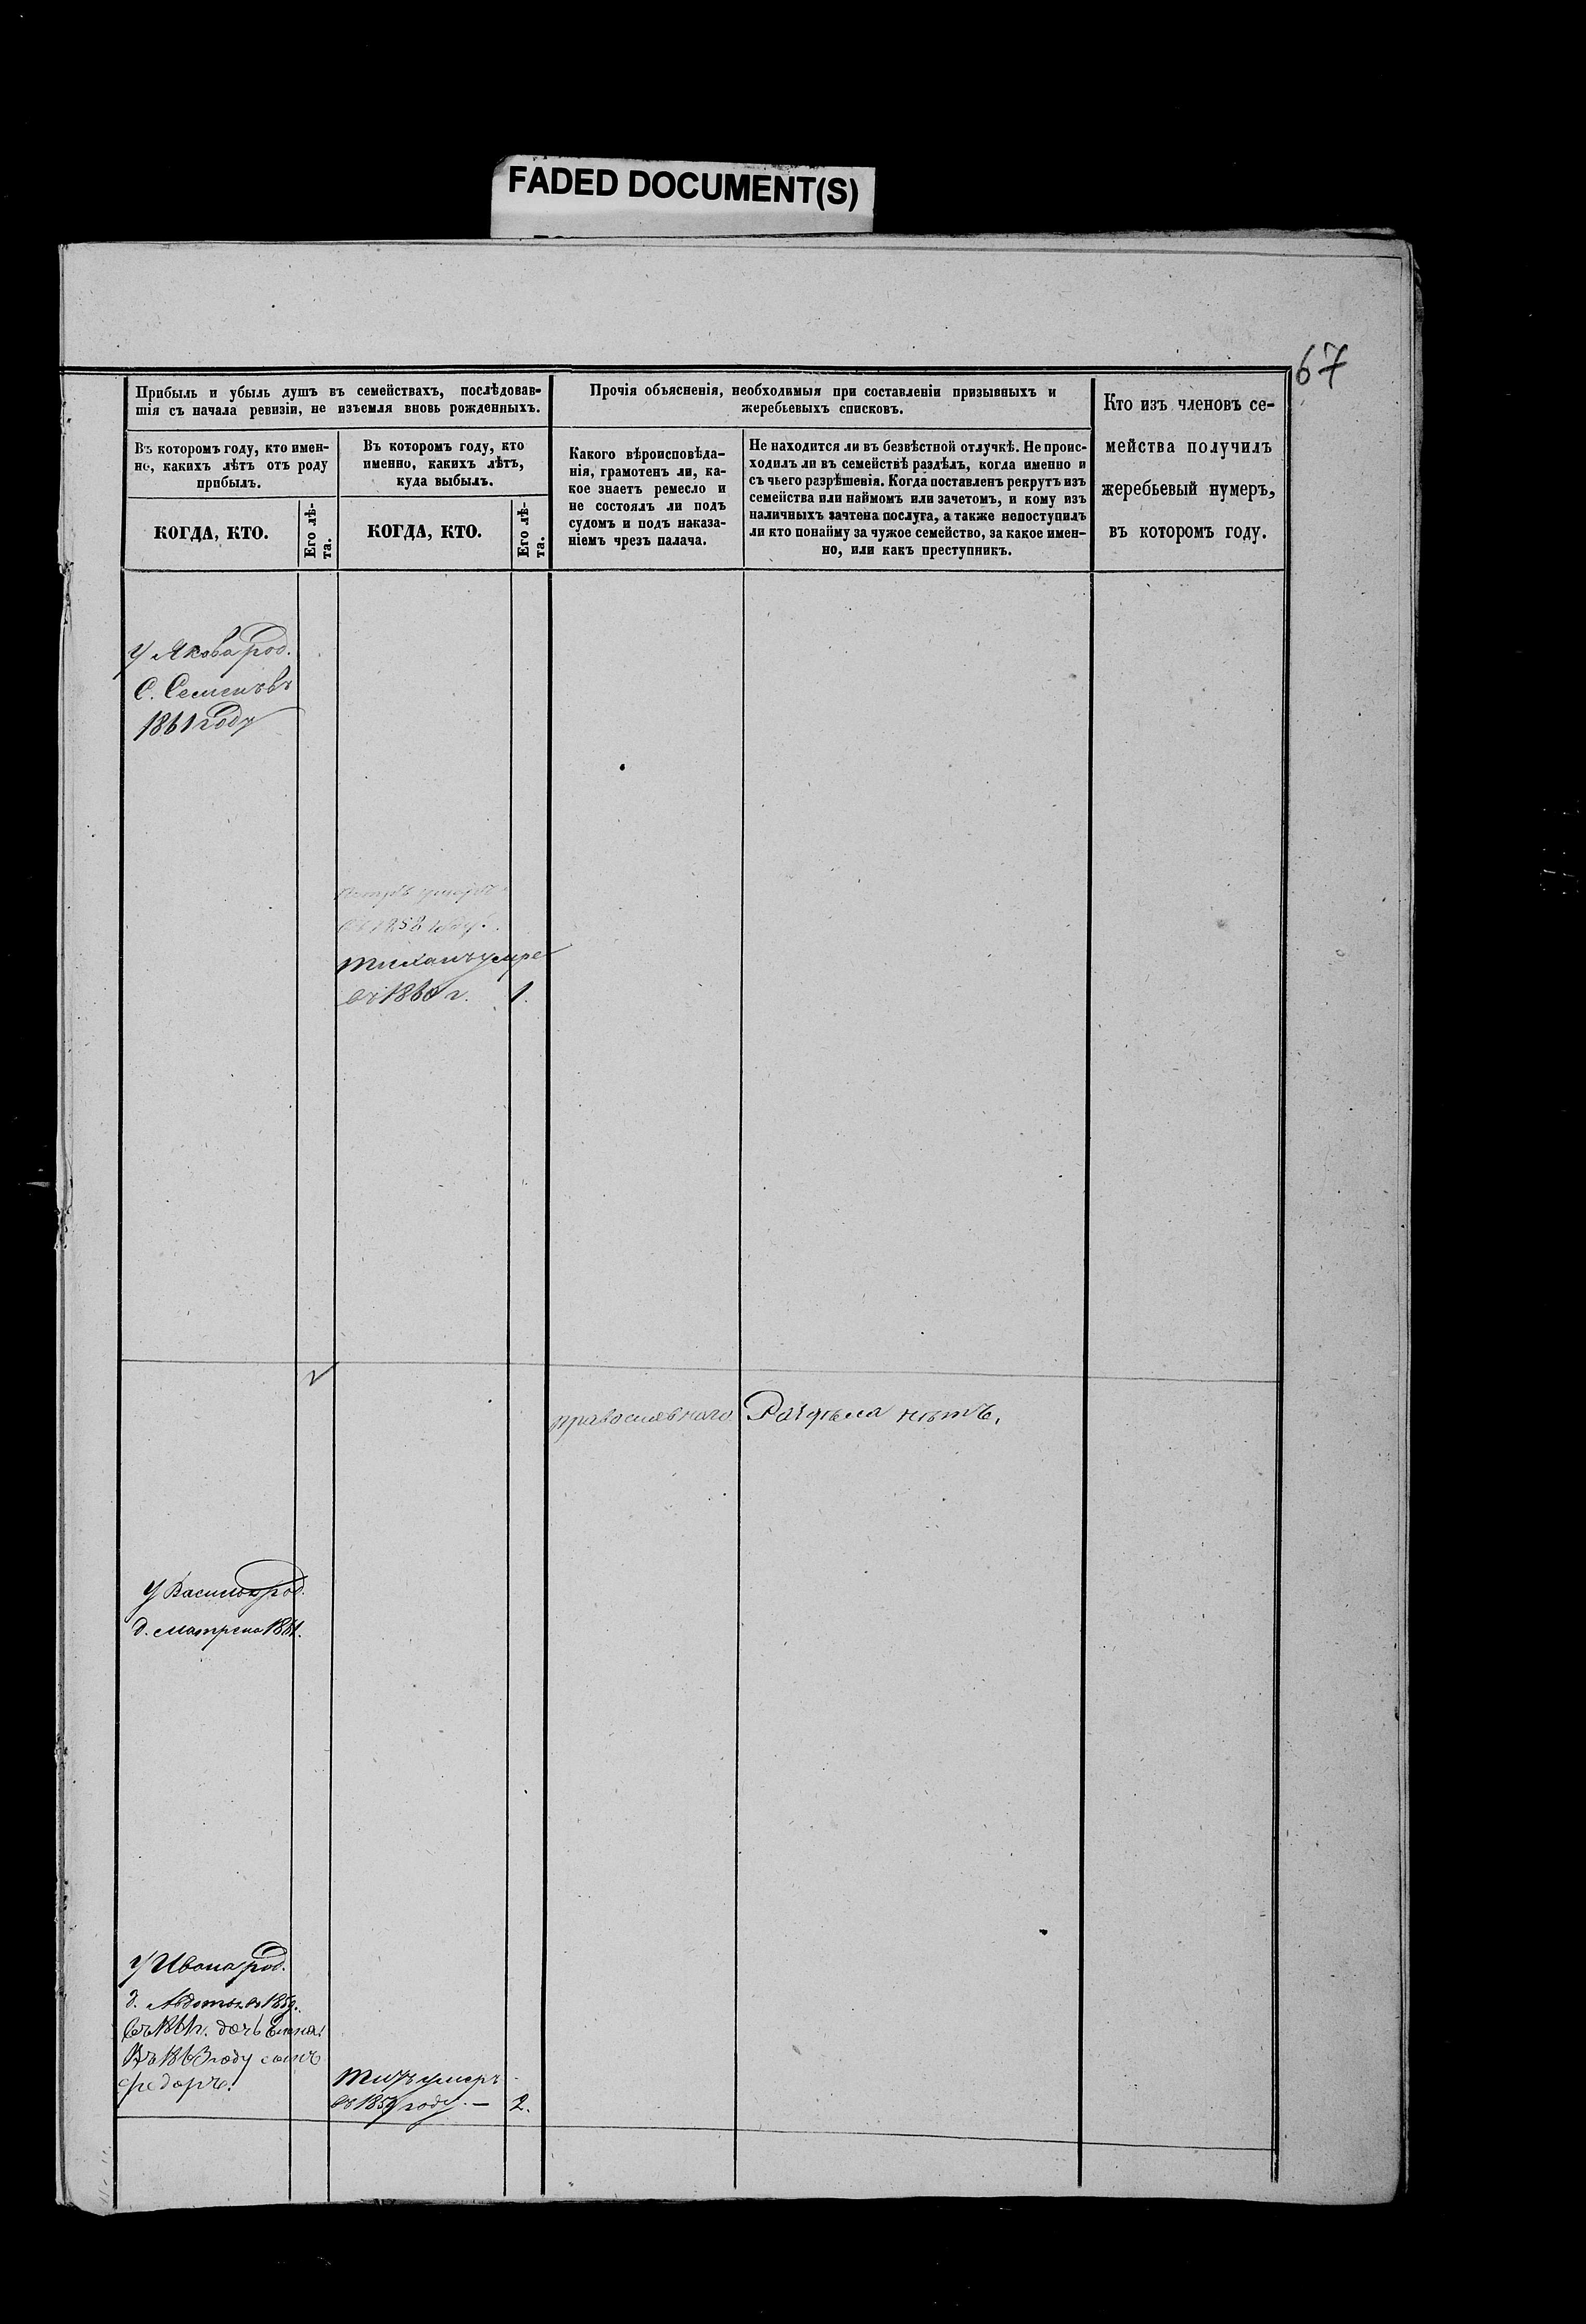 FADED DOCUMENT(S)
67
Прибыль и убыль душъ въ семействахъ, послѣдовав-
шія съ начала ревизіи, не изъемля вновь рожденныхъ.
Въ которомъ году, кто имен-
но, какихъ лѣтъ отъ роду
прибылъ.
КОГДА, КТО.
Его лѣ-
та.
Въ которомъ году, кто
именно, какихъ лѣтъ,
куда выбылъ.
КОГДА, КТО.
Его лѣ-
та.
Прочія объясненія, необходимыя при составленіи призывныхъ и
жеребьевыхъ списковъ.
Какого вѣроисповѣда-
нія, грамотенъ ли, ка-
кое знаетъ ремесло и
не состоялъ ли подъ
судомъ и подъ наказа-
ніемъ чрезъ палача.
Не находится ли въ безвѣстной отлучкѣ. Не проис-
ходилъ ли въ семействѣ раздѣлъ, когда именно и
съ чьего разрѣшенія. Когда поставленъ рекрутъ изъ
семейства или наймомъ или зачетомъ, и кому изъ
наличныхъ зачтена послуга, а также непоступилъ
ли кто понайму за чужое семейство, за какое имен-
но, или какъ преступникъ.
Кто изъ членовъ се-
мейства получилъ
жеребьевый нумеръ,
въ которомъ году.
У Якова род.
С. Семенъ въ
1861 году
Петръ умеръ
въ 1858 году.
Тиханъ умре
въ 1860 г. 1.
православнаго
Раздѣла нѣтъ.
У Василья род.
д. Матрена 1861.
У Ивана род.
д. Авдотья въ 1859.
въ 1861 г. дочь Елена
Въ 1863 году сынъ
Федоръ.
Титъ умеръ
въ 1859 году. — 2.